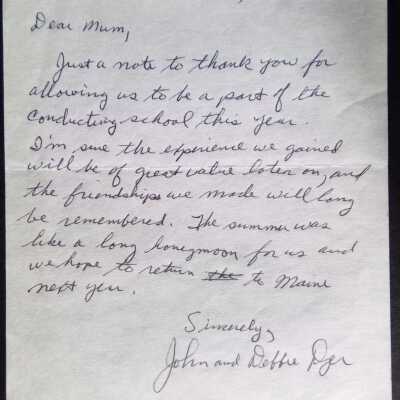 Dear Mum,
Just a note to thank you for
allowing us to be a part of the
conducting school this year.
I'm sure the experience we gained
will be of great value later on, and
the friendships we made will long
be remembered. The summer was
like a long honeymoon for us and
we hope to return the to Maine
next year.
Sincerely,
John and Debbie Dyer